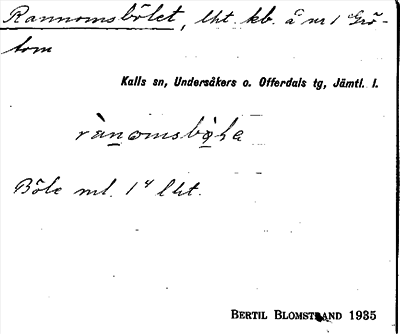 Rannomsbölet, lht. kb. å nr 1 Grö-
tom
Kalls sn, Undersåkers o. Offerdals tg, Jämtl. l.
rànomsbọ̀la
Böle ml. 1 4 lht.
BERTIL BLOMSTRAND 1935